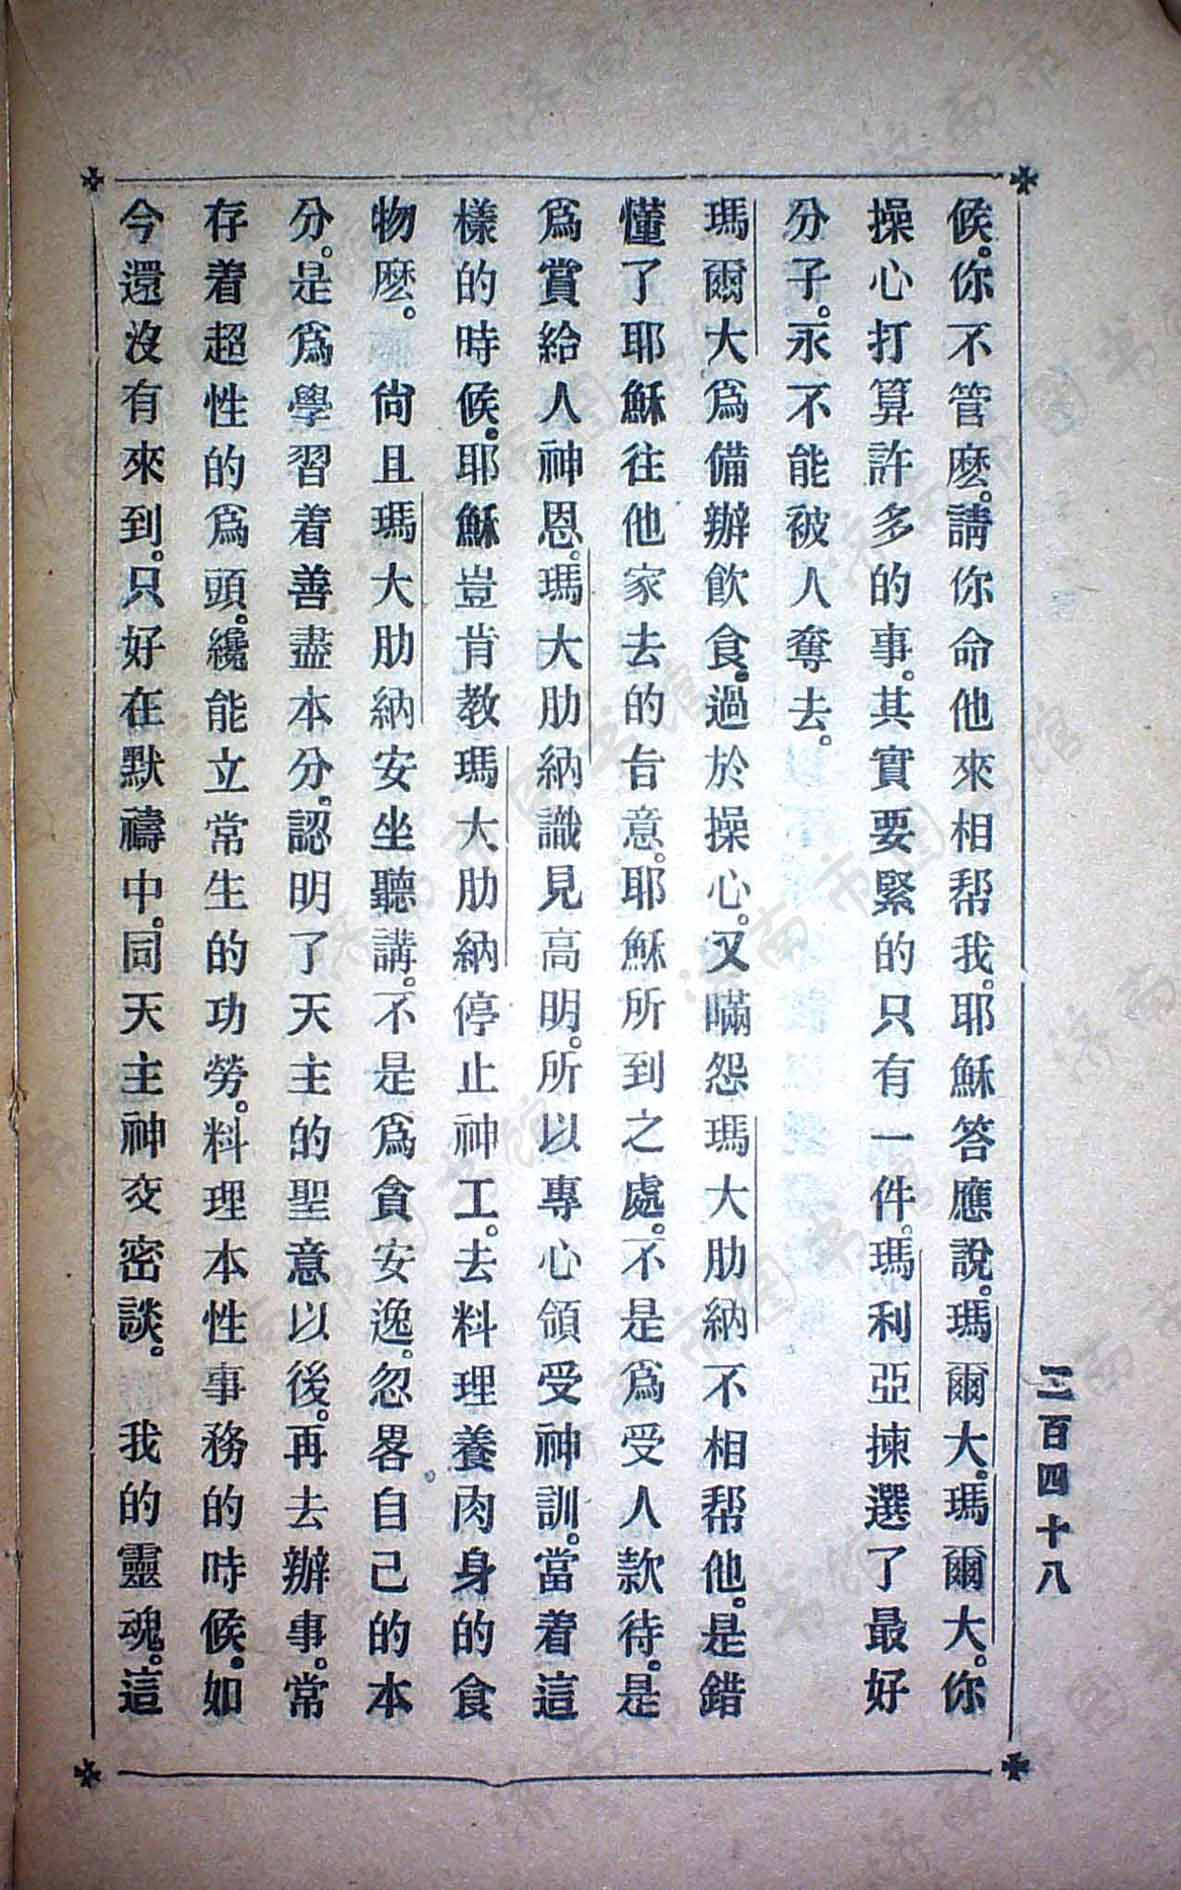 候。你不管麽。請你命他來相帮我。耶穌答應說。瑪爾大。瑪爾大。你
操心打算許多的事。其實要緊的只有一件。瑪利亞揀選了最好
分子。永不能被人奪去。
瑪爾大爲備辦飮食。過於操心。又瞞怨瑪大肋納不相帮他。是錯
懂了耶穌往他家去的旨意。耶穌所到之處。不是爲受人款待。是
爲賞給人神恩。瑪大肋納識見高明。所以專心領受神訓。當着這
樣的時候。耶穌豈肯教瑪大肋納停止神工。去料理養肉身的食
物麽。尙且瑪大肋納安坐聽講。不是爲貪安逸。忽畧。自己的本
分。是爲學習着善盡本分。認明了天主的聖意以後。再去辦事。常
存着超性的爲頭。纔能立常生的功勞。料理本性事務的時候。如
今還沒有來到。只好在默禱中。同天主神交密談。我的靈魂。這
三百四十八
济南市图书馆